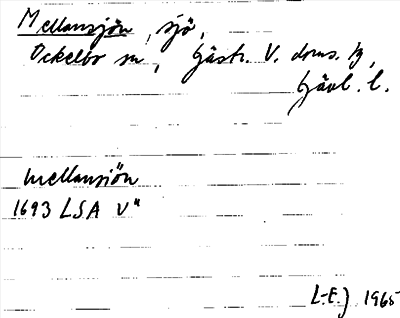 Mellansjön, sjö,
Ockelbo sn, Gästr. V. doms. hg,
Gävl. l.
Mellansiön
1693 LSA V"
L-E.J 1965